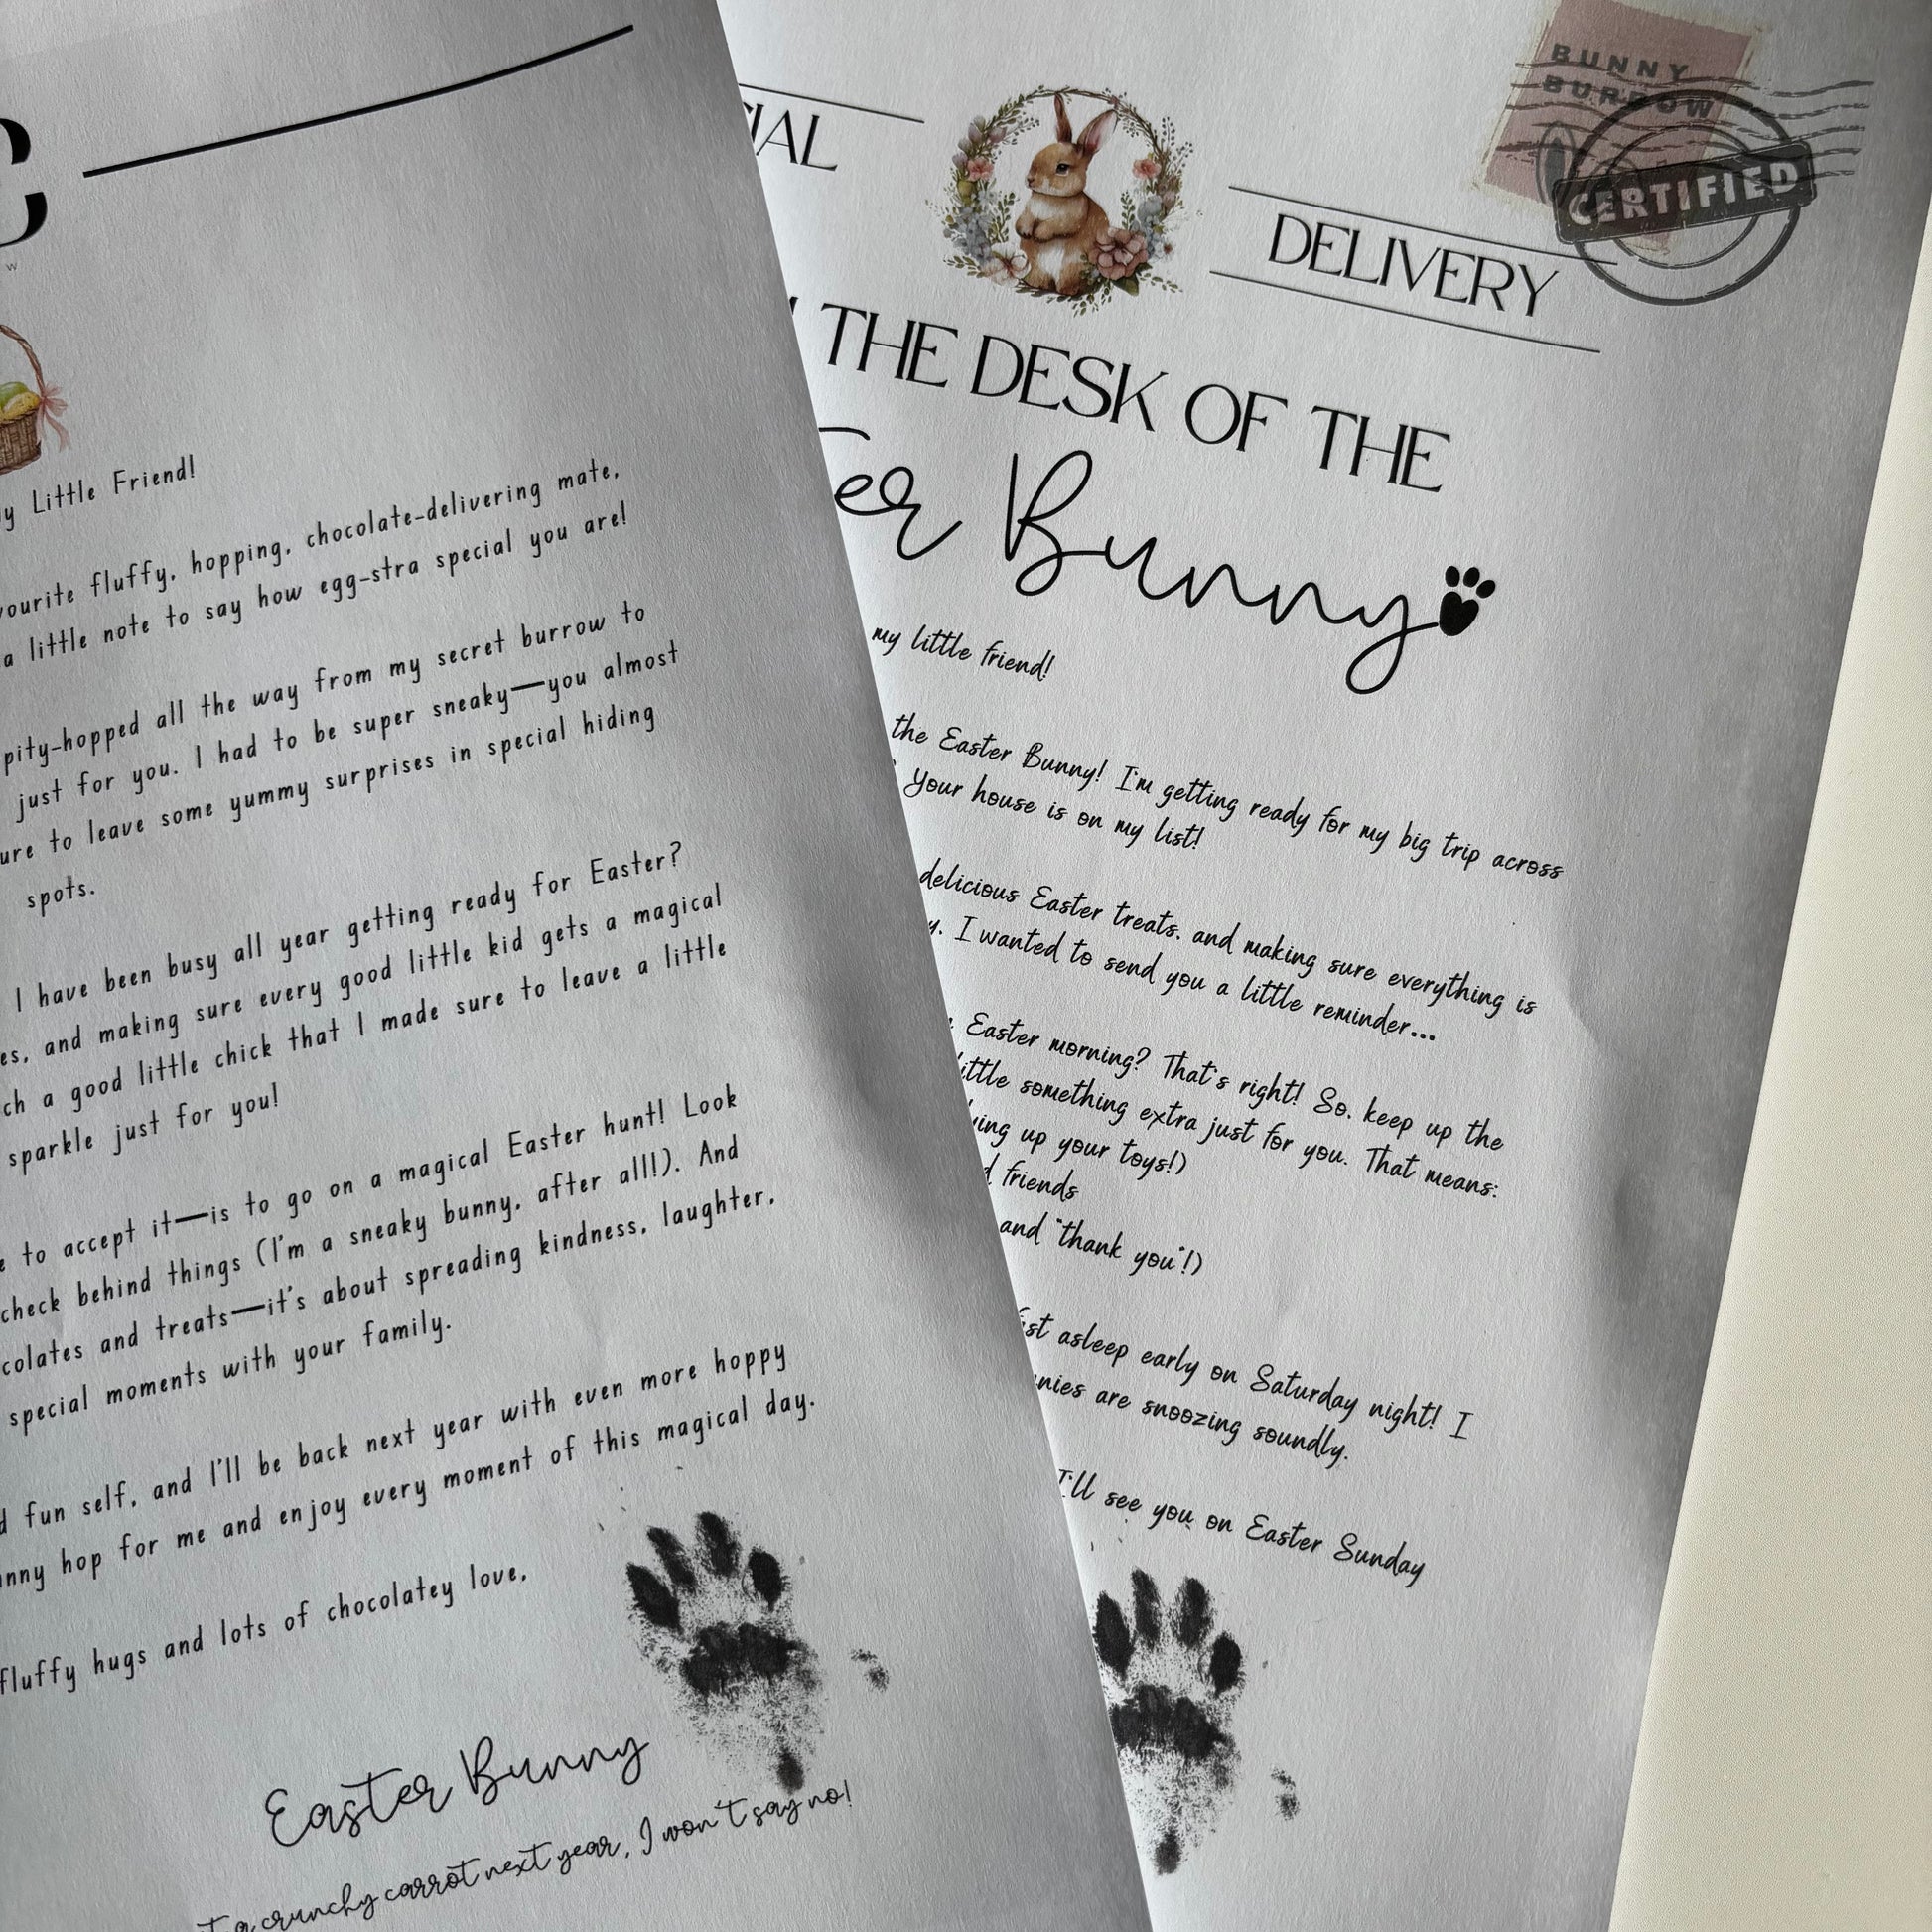 w
Little Friend!
fluffy, hopping, chocolate-delivering mate,
a little note to say how egg-stra special you are!
all the way from my secret burrow to
just for you. I had to be super sneaky—you almost
to leave some yummy surprises in special hiding
spots.
I have been busy all year getting ready for Easter?
and making sure every good little kid gets a magical
a good little chick that I made sure to leave a little
sparkle just for you!
to accept it—is to go on a magical Easter hunt! Look
check behind things (I'm a sneaky bunny, after all!). And
and treats—it's about spreading kindness, laughter,
special moments with your family.
fun self, and I'll be back next year with even more hoppy
hop for me and enjoy every moment of this magical day.
fluffy hugs and lots of chocolatey love,
Easter Bunny
a crunchy carrot next year, I won't say no!
BUNNY
BURROW
CERTIFIED
DELIVERY
THE DESK OF THE
Bunny
my little friend!
the Easter Bunny! I'm getting ready for my big trip across
Your house is on my list!
delicious Easter treats, and making sure everything is
I wanted to send you a little reminder...
Easter morning? That's right! So, keep up the
little something extra just for you. That means:
up your toys!)
friends
and "thank you"!)
asleep early on Saturday night! I
are snoozing soundly.
I'll see you on Easter Sunday